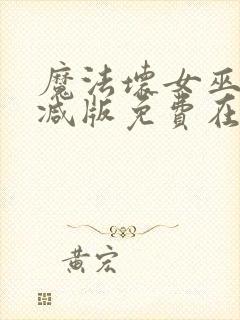 魔法壞女巫
减版免費在
黄宏